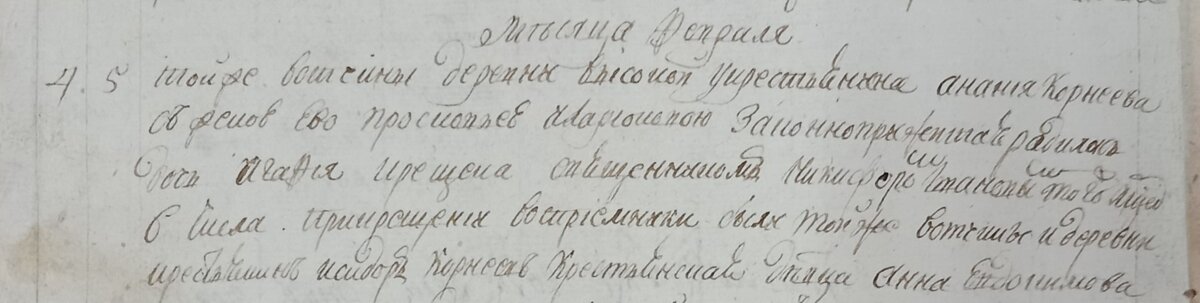 Мѣсяца Февраля
4. 5 тойже вотчины деревни высокой укрестьянина ананiя Корнеева
съ женою Ево просковьею законноприжитая радилась
дочь Агафiя крещена священникомъ Никифоромъ того
6 числа. Прикрещенiи воспрiемники были тойже вотчины и деревни
крестьянинъ исидоръ Корнеевъ Крестьянская дѣвица анна Евдокимова